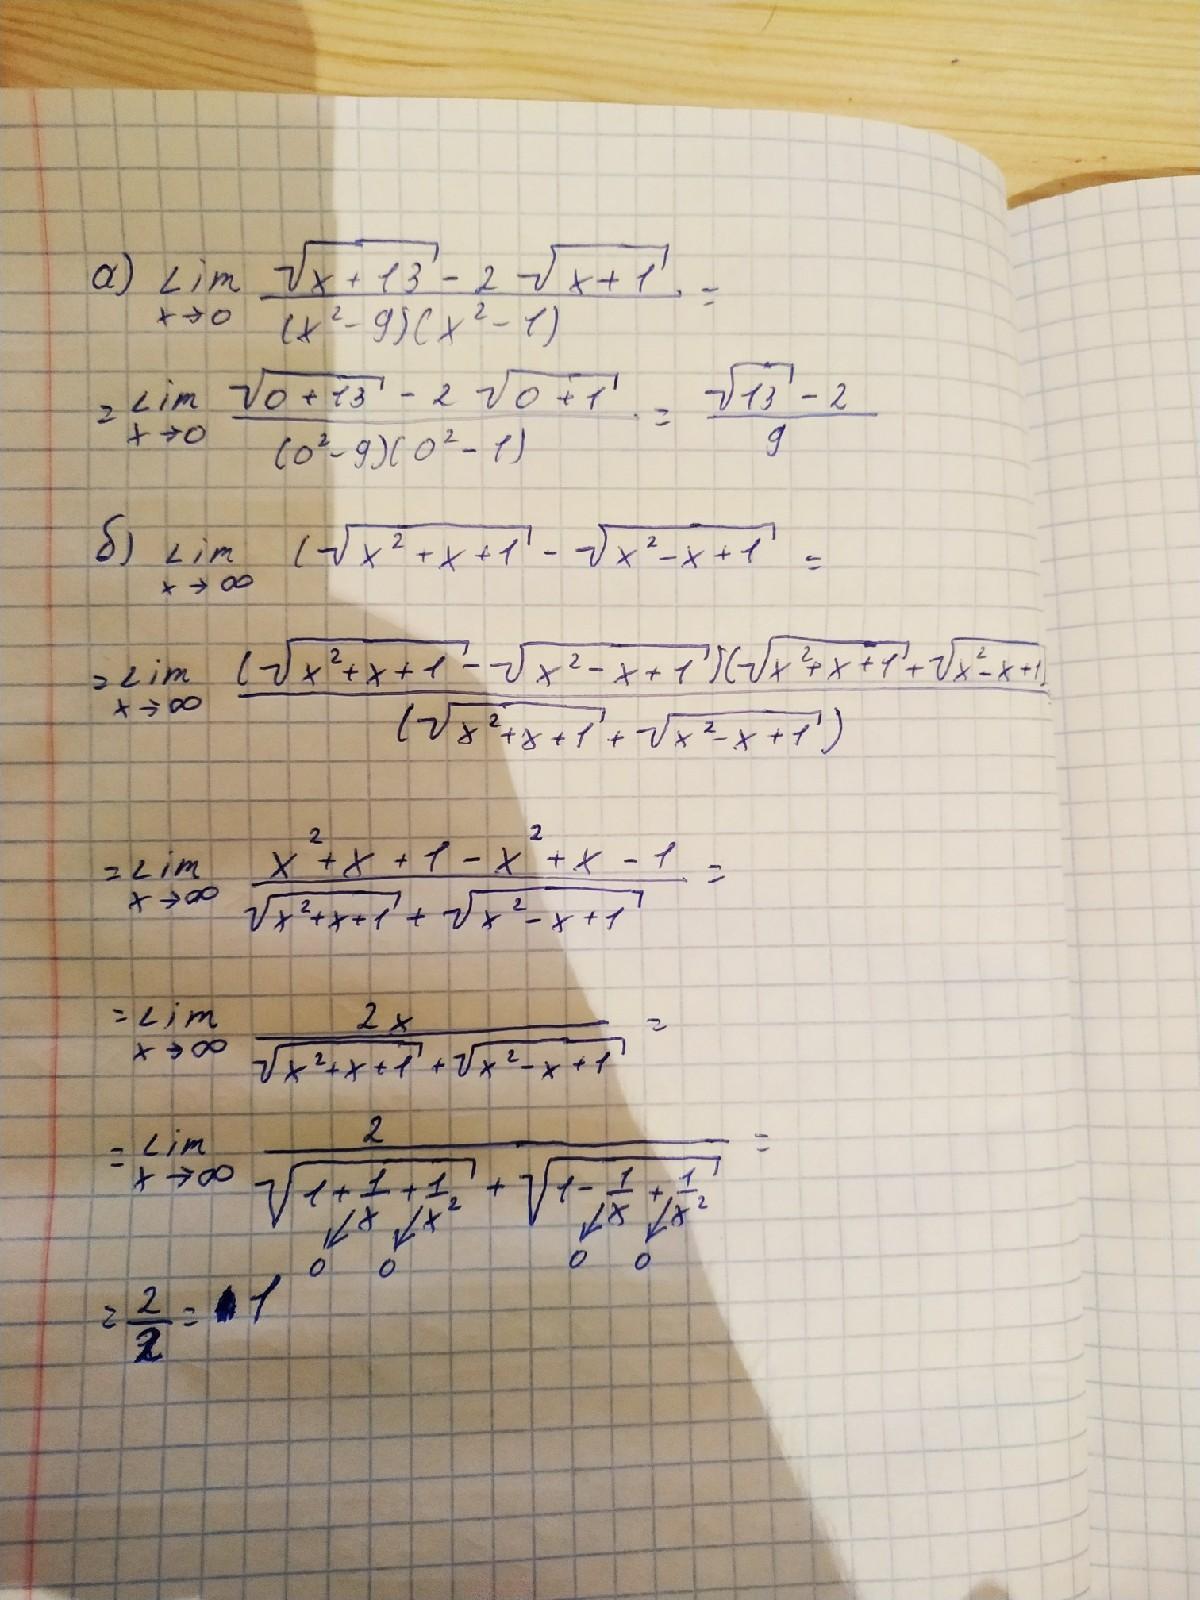 а) Lim x→0 (√(x+13) - 2√(x+1)) / ((x²-9)(x²-1)) =
= Lim x→0 (√(0+13) - 2√(0+1)) / ((0²-9)(0²-1)) = (√13 - 2) / 9
б) Lim x→∞ (√(x²+x+1) - √(x²-x+1) =
= Lim x→∞ ((√(x²+x+1) - √(x²-x+1))(√(x²+x+1) + √(x²-x+1)) / (√(x²+x+1) + √(x²-x+1))
= Lim x→∞ (x²+x+1-x²+x-1) / (√(x²+x+1) + √(x²-x+1)) =
= Lim x→∞ 2x / (√(x²+x+1) + √(x²-x+1)) =
= Lim x→∞ 2 / (√(1+1/x+1/x²) + √(1-1/x+1/x²)) =
0 0 0 0
= 2/2 = 1